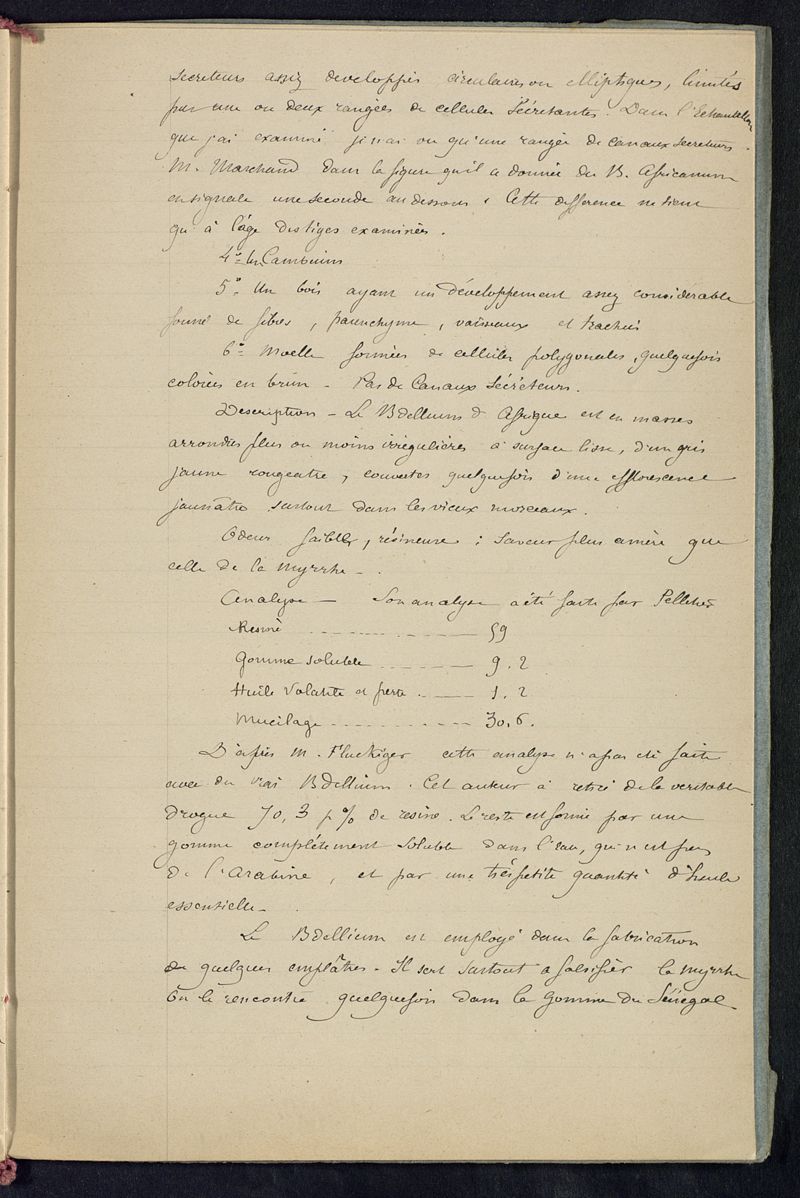 secreteurs assez developpés circulaires ou elliptiques, limités
par une ou deux rangées de cellules sécrétantes. Dans l'Echantillon
que j'ai examiné je n'ai vu qu'une rangée de canaux secreteurs.
M. Marchand dans la figure qu'il a donnée du B. Africanum
en signale une seconde au dessous. Cette difference ne tient
qu'à l'âge des tiges examinées.
4º- Un Cambium
5º- Un bois ayant un développement assez considerable
formé de fibres, parenchyme, vaisseaux et trachées
6º- Moelle formée de cellules polygonales, quelquefois
colorées en brun - Pas de Canaux Sécréteurs.
Description - Le Bdellium d'Afrique est en masses
arrondies plus ou moins irrégulières à surface lisse, d'un gris
jaune rougeatre, couvertes quelquefois d'une efflorescence
jaunâtre surtout dans les vieux morceaux.
Odeur faible, résineuse ; saveur plus amère que
celle de la Myrrhe - .
Analyse — Son analyse a été faite par Pelletier
Resine ---------- 59
Gomme soluble ---------- 9.2
Huile Volatile et perte ---------- 1.2
Mucilage ---------- 30.6.
D'après M. Fluckiger cette analyse n'a pas été faite
avec du vrai Bdellium. Cet auteur a retiré de la veritable
drogue 70,3 p % de resine. Le reste est formé par une
gomme complétement soluble dans l'eau, qui n'est pas
de l'Arabine, et par une très petite quantité d'huile
essentielle -
Le Bdellium est employé dans la fabrication
de quelques emplâtres - Il sert surtout a falsifier la myrrhe
On le rencontre quelquefois dans la Gomme du Sénégal